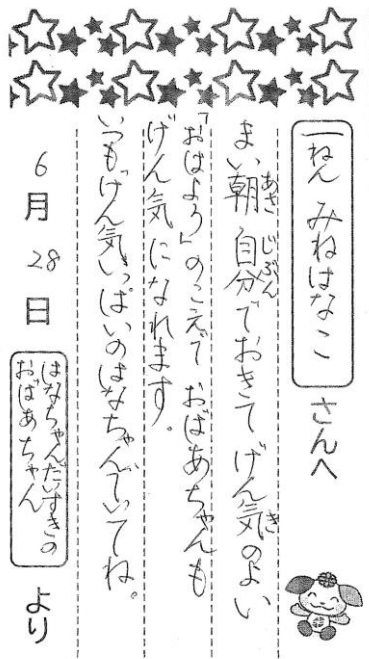 一ねん みねはなこ さんへ
まい朝 自分でおきて げん気のよい
あさ じぶん き
「おはよう」のこえで おばあちゃんも
げん気になれます。
いつもげん気いっぱいのはなちゃんでいてね。
6月28日
はなちゃんだいすきの
おばあちゃん より